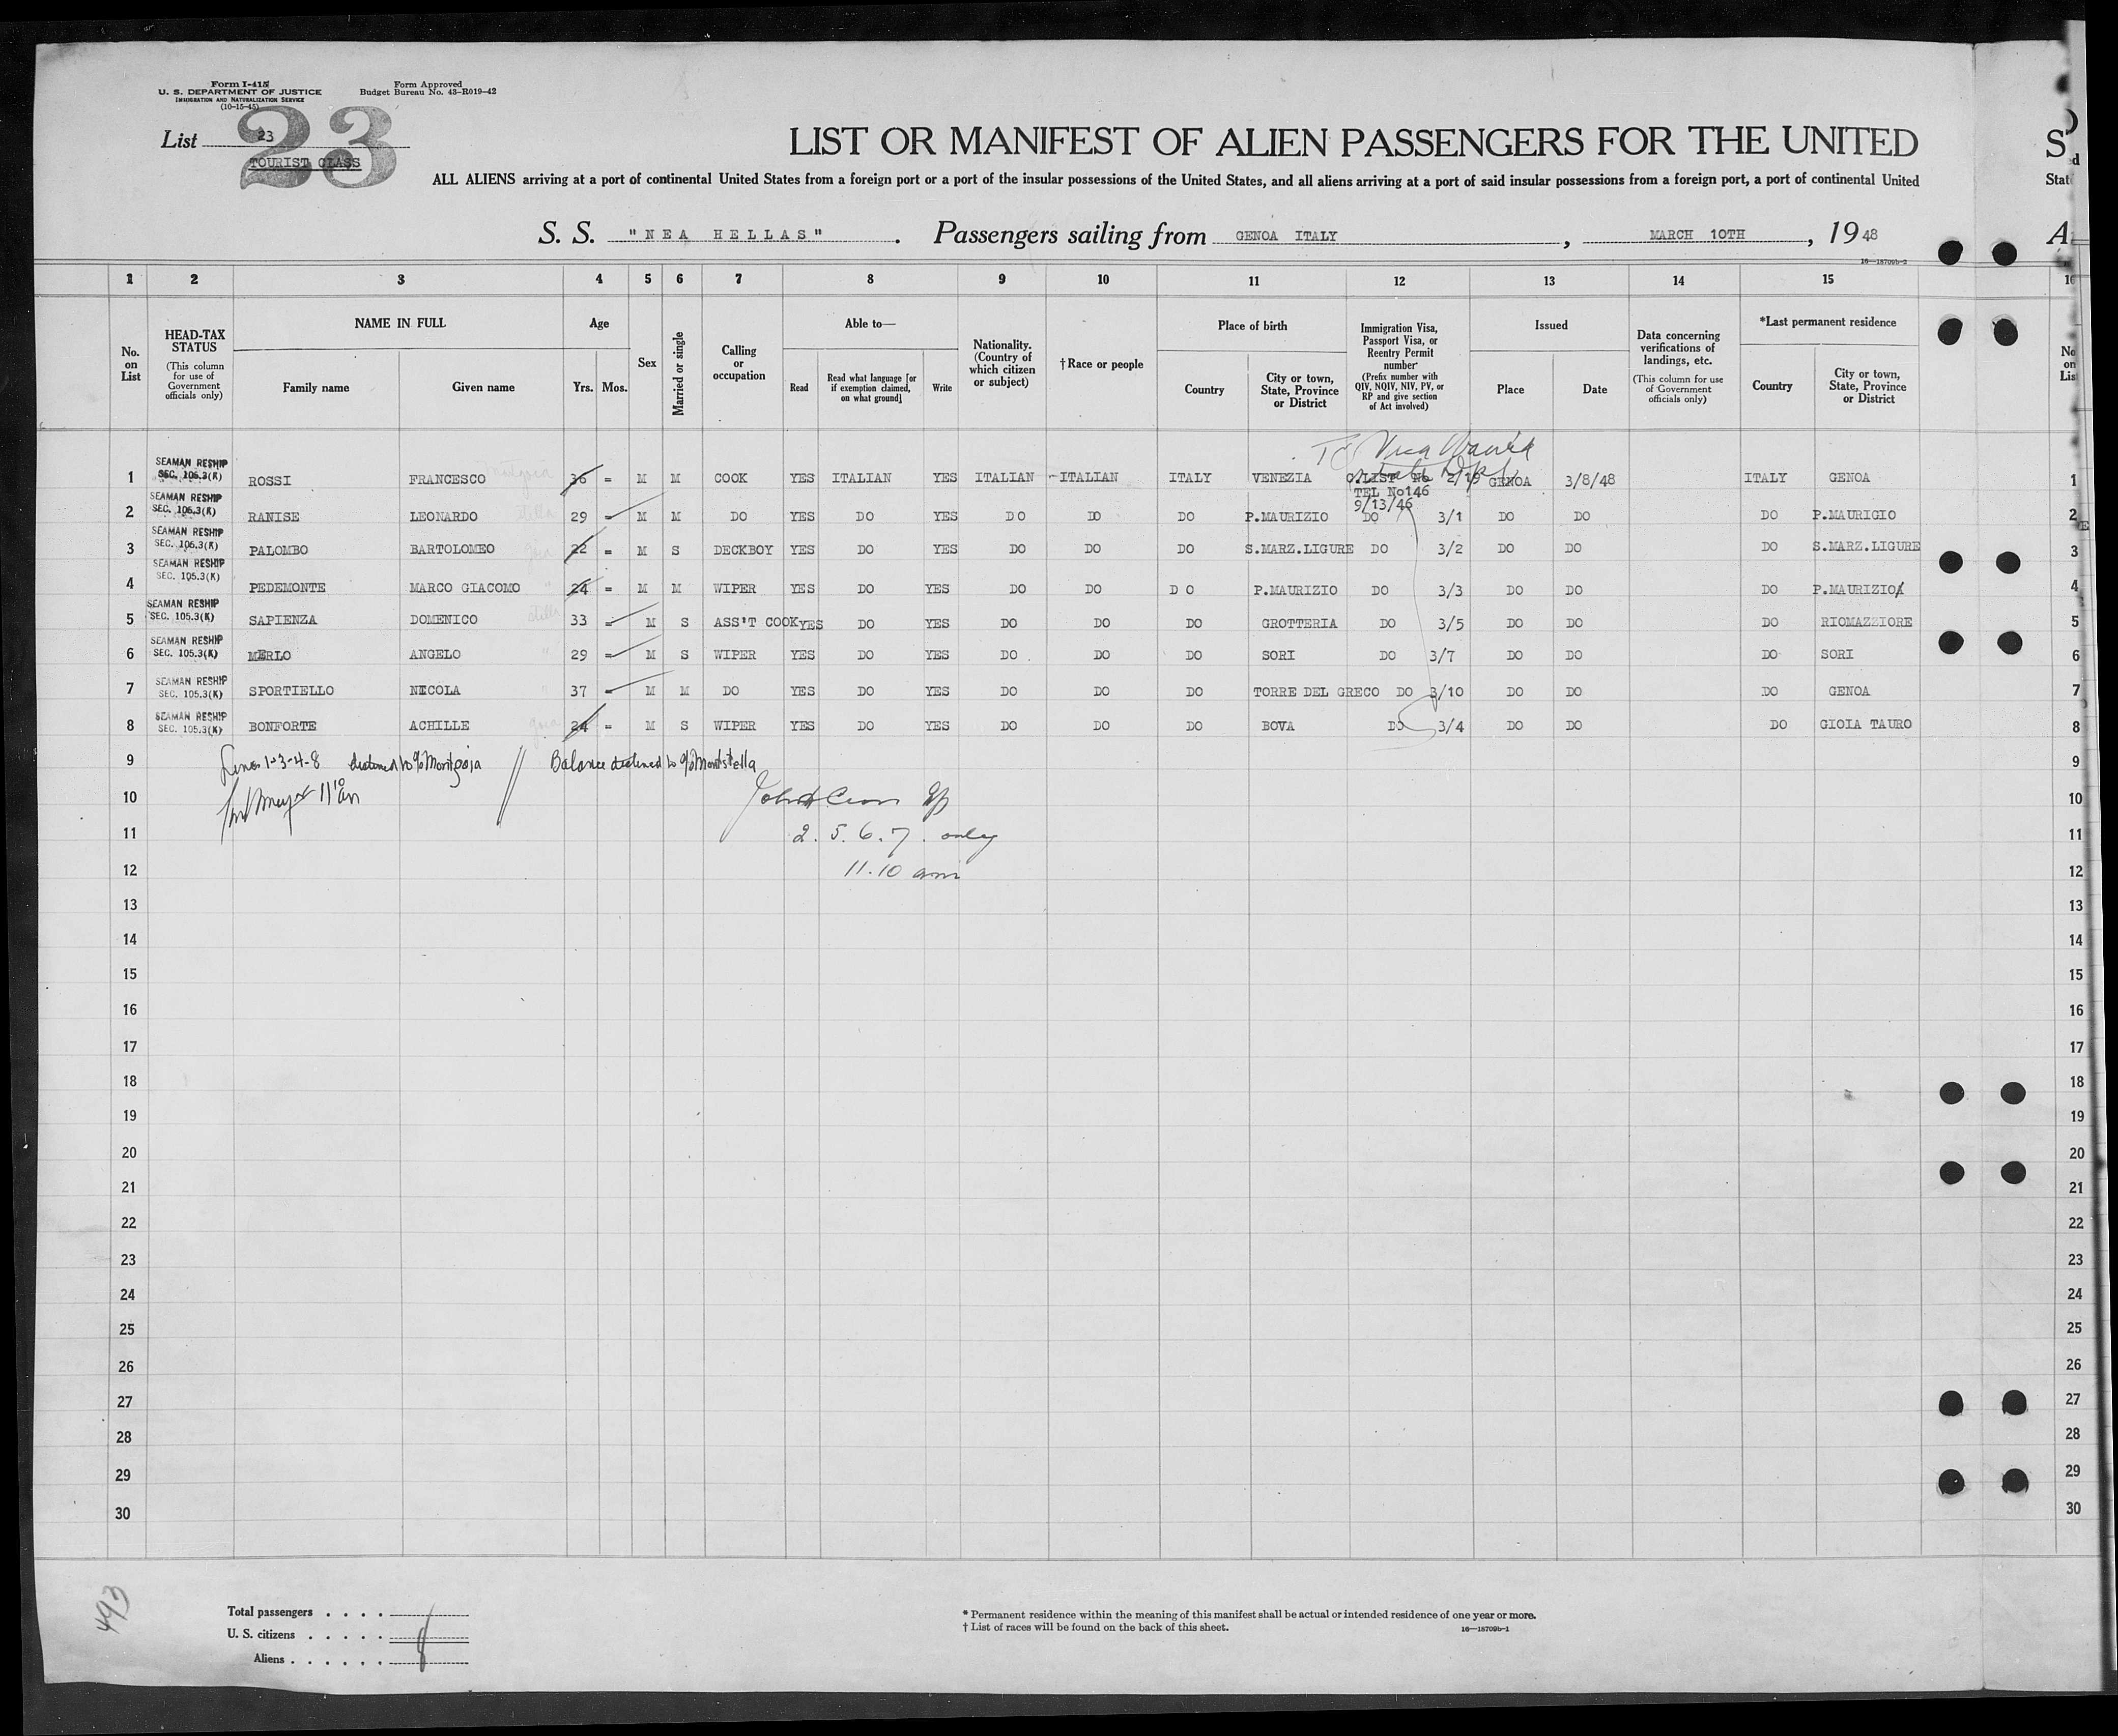 Form I-415
U. S. DEPARTMENT OF JUSTICE
IMMIGRATION AND NATURALIZATION SERVICE
(10-15-45)
Form Approved
Budget Bureau No. 43-R019-42
List 23
23
TOURIST CLASS
LIST OR MANIFEST OF ALIEN PASSENGERS FOR THE UNITED
ALL ALIENS arriving at a port of continental United States from a foreign port or a port of the insular possessions of the United States, and all aliens arriving at a port of said insular possessions from a foreign port, a port of continental United
S. S. "NEA HELLAS". Passengers sailing from GENOA ITALY, MARCH 10TH, 1948
16—18709b-2
1 2 3 4 5 6 7 8 9 10 11 12 13 14 15
No. on List
HEAD-TAX STATUS
(This column for use of Government officials only)
NAME IN FULL
Family name Given name
Age
Yrs. Mos.
Sex
Married or single
Calling or occupation
Able to—
Read
Read what language [or if exemption claimed, on what ground]
Write
Nationality. (Country of which citizen or subject)
†Race or people
Place of birth
Country
City or town, State, Province or District
Immigration Visa, Passport Visa, or Reentry Permit number
(Prefix number with QIV, NQIV, NIV, PV, or RP and give section of Act involved)
Issued
Place Date
Data concerning verifications of landings, etc.
(This column for use of Government officials only)
*Last permanent residence
Country
City or town, State, Province or District
Visa
1 SEAMAN RESHIP SEC. 105.3(K) ROSSI FRANCESCO 36 = M M COOK YES ITALIAN YES ITALIAN ITALIAN ITALY VENEZIA C.LIST No 2/19 GENOA 3/8/48 ITALY GENOA 1
TEL No146
9/13/46
2 SEAMAN RESHIP SEC. 105.3(K) RANISE LEONARDO 29 = M M DO YES DO YES DO DO DO P.MAURIZIO DO 3/1 DO DO DO P.MAURIGIO 2
3 SEAMAN RESHIP SEC. 105.3(K) PALOMBO BARTOLOMEO 22 = M S DECKBOY YES DO YES DO DO DO S.MARZ.LIGURE DO 3/2 DO DO DO S.MARZ.LIGURE 3
4 SEAMAN RESHIP SEC. 105.3(K) PEDEMONTE MARCO GIACOMO 24 = M M WIPER YES DO YES DO DO DO P.MAURIZIO DO 3/3 DO DO DO P.MAURIZIO 4
5 SEAMAN RESHIP SEC. 105.3(K) SAPIENZA DOMENICO 33 = M S ASS'T COOK YES DO YES DO DO DO GROTTERIA DO 3/5 DO DO DO RIOMAZZIORE 5
6 SEAMAN RESHIP SEC. 105.3(K) MERLO ANGELO 29 = M S WIPER YES DO YES DO DO DO SORI DO 3/7 DO DO DO SORI 6
7 SEAMAN RESHIP SEC. 105.3(K) SPORTIELLO NICOLA 37 = M M DO YES DO YES DO DO DO TORRE DEL GRECO DO 3/10 DO DO DO GENOA 7
8 SEAMAN RESHIP SEC. 105.3(K) BONFORTE ACHILLE 24 = M S WIPER YES DO YES DO DO DO BOVA DO 3/4 DO DO DO GIOIA TAURO 8
9 Lines 1-3-4-8 destined to c/o Montgioia // Balance destined to c/o Montstella 9
10 10
11 2. 5. 6. 7. only 11
12 11.10 am 12
13 13
14 14
15 15
16 16
17 17
18 18
19 19
20 20
21 21
22 22
23 23
24 24
25 25
26 26
27 27
28 28
29 29
30 30
493
Total passengers
U. S. citizens
Aliens
8
* Permanent residence within the meaning of this manifest shall be actual or intended residence of one year or more.
† List of races will be found on the back of this sheet.
16—18709b-1